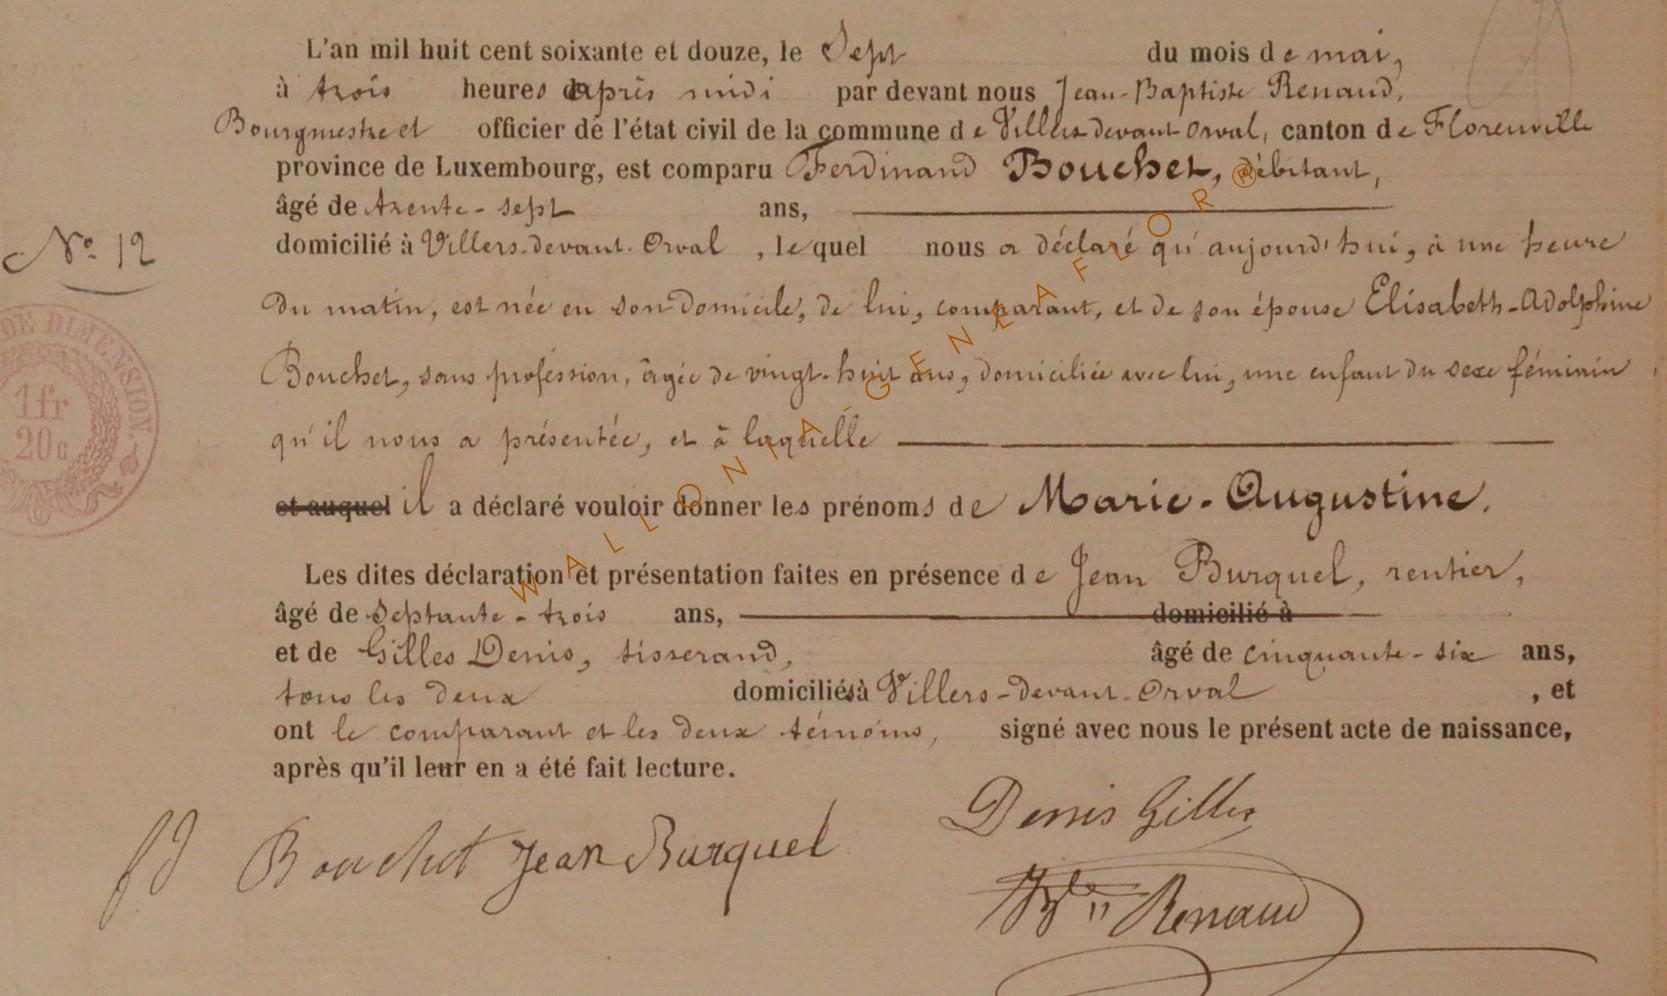 L'an mil huit cent soixante et douze, le Sept du mois de mai,
à trois heures après midi par devant nous Jean-Baptiste Renaud,
Bourgmestre et officier de l'état civil de la commune de Villers devant Orval, canton de Florenville
province de Luxembourg, est comparu Ferdinand Bouchet, débitant,
âgé de trente-sept ans,
N° 12
domicilié à Villers-devant-Orval, lequel nous a déclaré qu'aujourd'hui, à une heure
du matin, est née en son domicile, de lui, comparant, et de son épouse Elisabeth-Adolphine
Bouchet, sans profession, âgée de vingt-huit ans, domiciliée avec lui, une enfant du sexe féminin
qu'il nous a présentée, et à laquelle
et auquel il a déclaré vouloir donner les prénoms de Marie-Augustine.
Les dites déclaration et présentation faites en présence de Jean Burquel, rentier,
âgé de septante-trois ans, domicilié à
et de Gilles Denis, tisserand, âgé de cinquante-six ans,
tous les deux domiciliés à Villers-devant-Orval, et
ont le comparant et les deux témoins, signé avec nous le présent acte de naissance,
après qu'il leur en a été fait lecture.
fd Bouchet Jean Burquel
Denis Gilles
Renaud
DE DIMENSION.
1 fr
20 c
WALLONIA-GENEAFLOR®